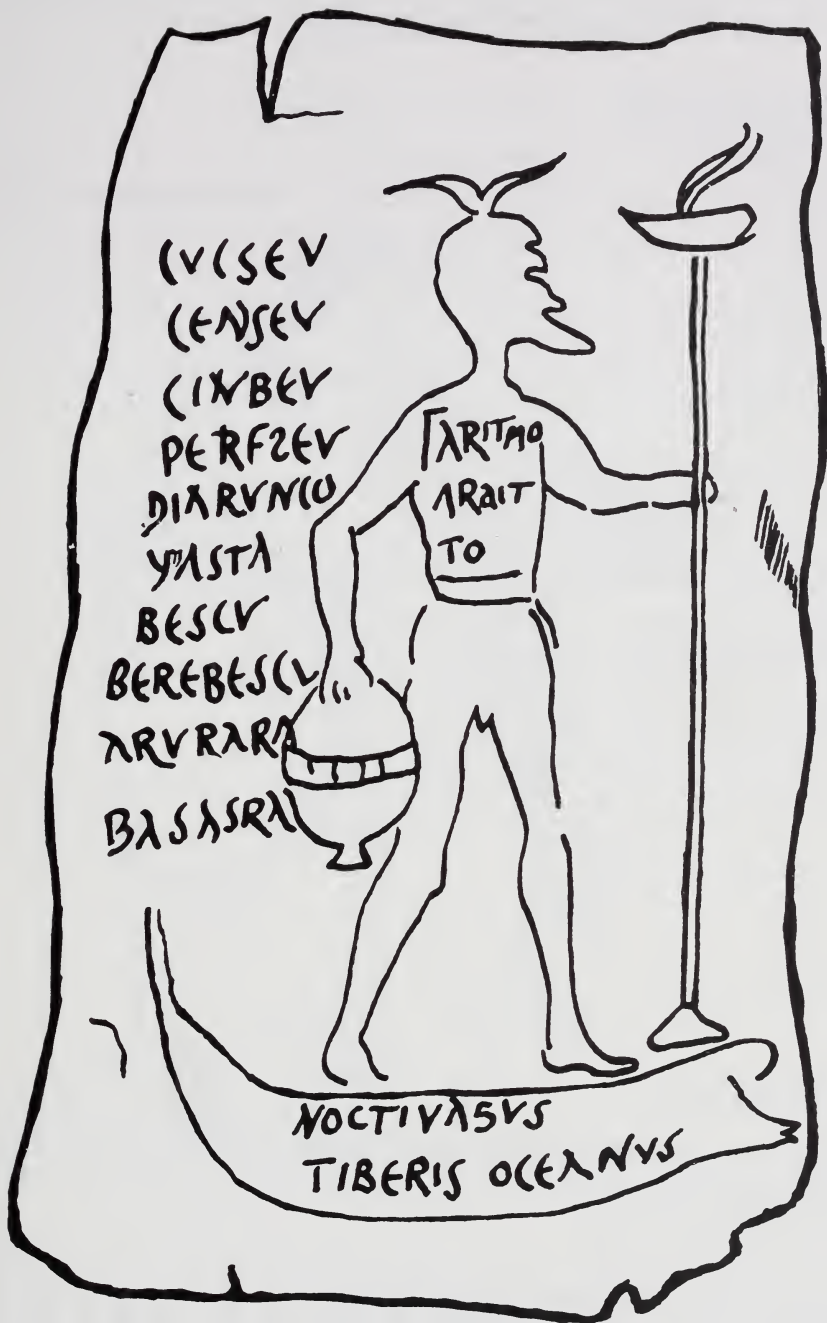 CVCSEV
CENSEV
CINBEV
PERFSEV
DIARVNCO
BESCV
BEREBESCV
ARVRARA
BASASRA
ARITMO
ARAIT
TO
NOCTIVAGVS
TIBERIS OCEANVS